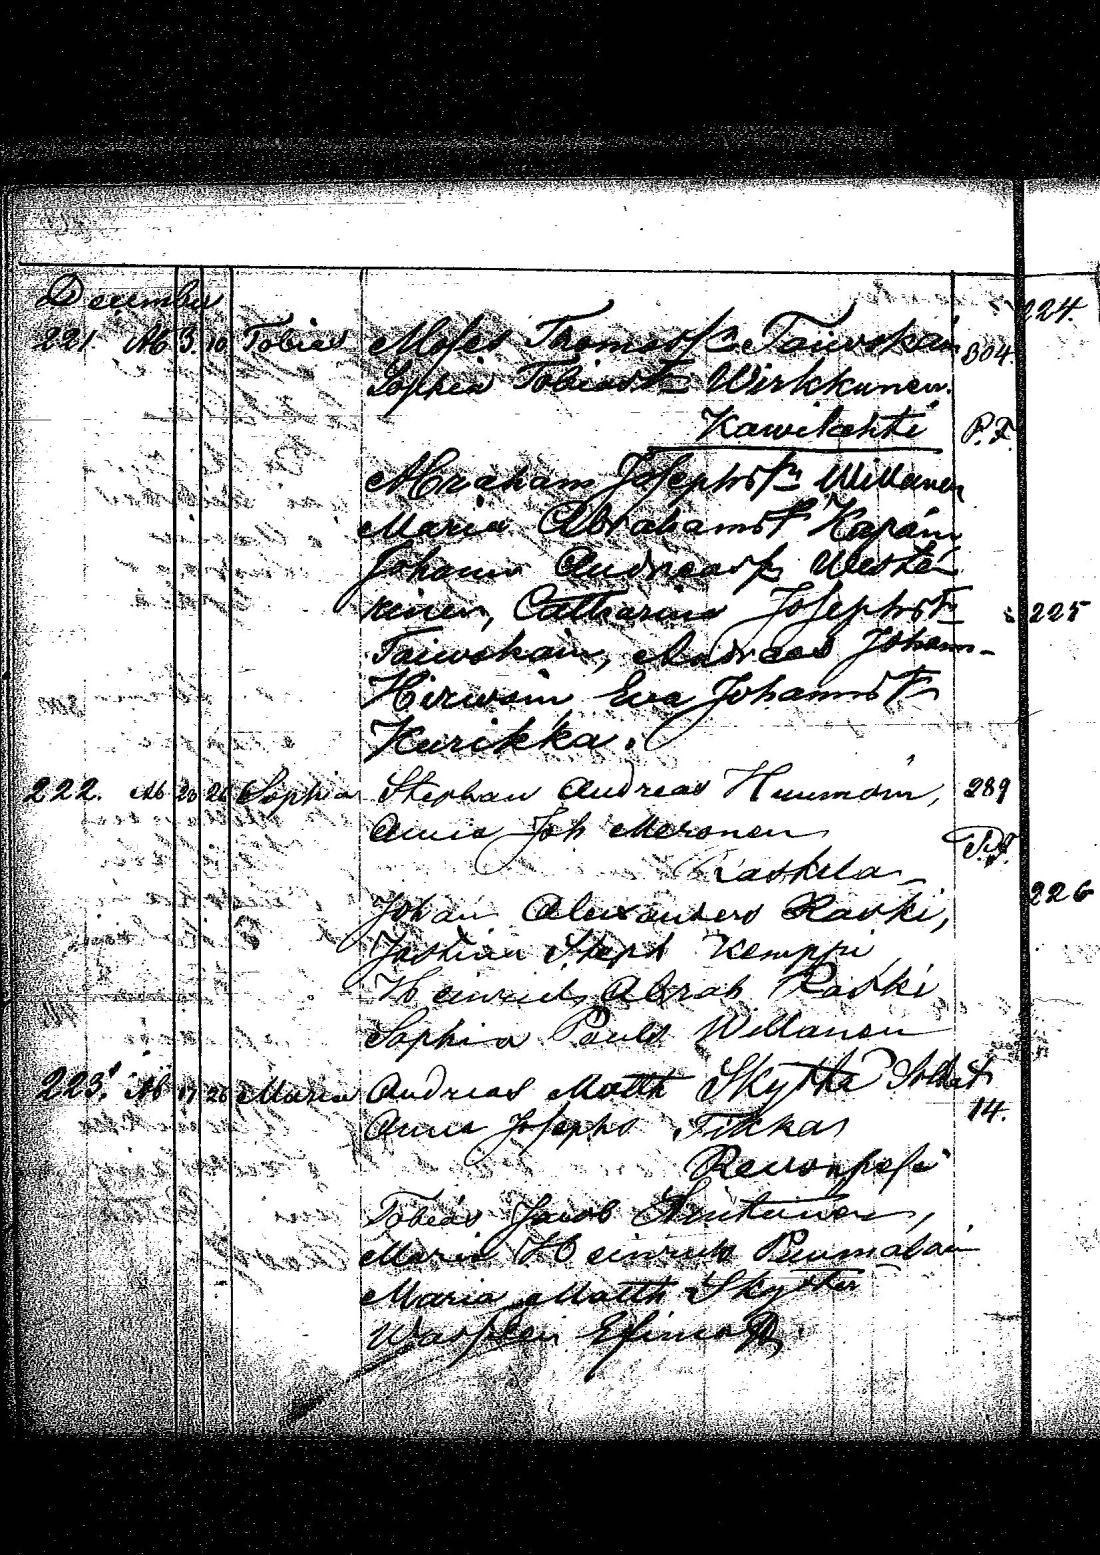 December
221. Ab 3. 10 Tobias Moses Thomass Taiwokain 304.
Sophia Tobiast Wirkkunen.
Kawilahti P.F
Abraham Josephs Willanen
Maria Abrahamst Kapain
Johann Andreass Weste-
rinen, Catharina Josephst
Taiwokain, Andreas Johann
Hirwoin Eva Johannst
Kurikka.
222. Ab 20 26 Sophia Stephan Andreas Huumoin, 289
Anna Joh Meronen
Raskela
Johan Alexanders Raski,
Steph Kemppi
Heinrich Abrah Raski
Sophia Pauls Willanen
223. Ab 17 26 Maria Andreas Matth Skytta Soldat
Anna Josephs Tikkas 14.
Tobias Jacob
Maria Heinrichs Pumalain
Maria Matth Skytta
224.
225
226